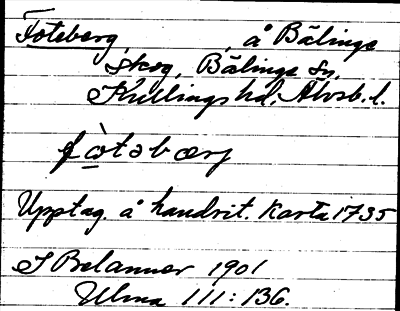 Foteberg, å Bälinge
skog, Bälinge sn,
Kullings hd, Älvsb. l.
fòtəbærj
Upptag. å handrit. karta 1735
S Belanner 1901
Ulma 111:136.